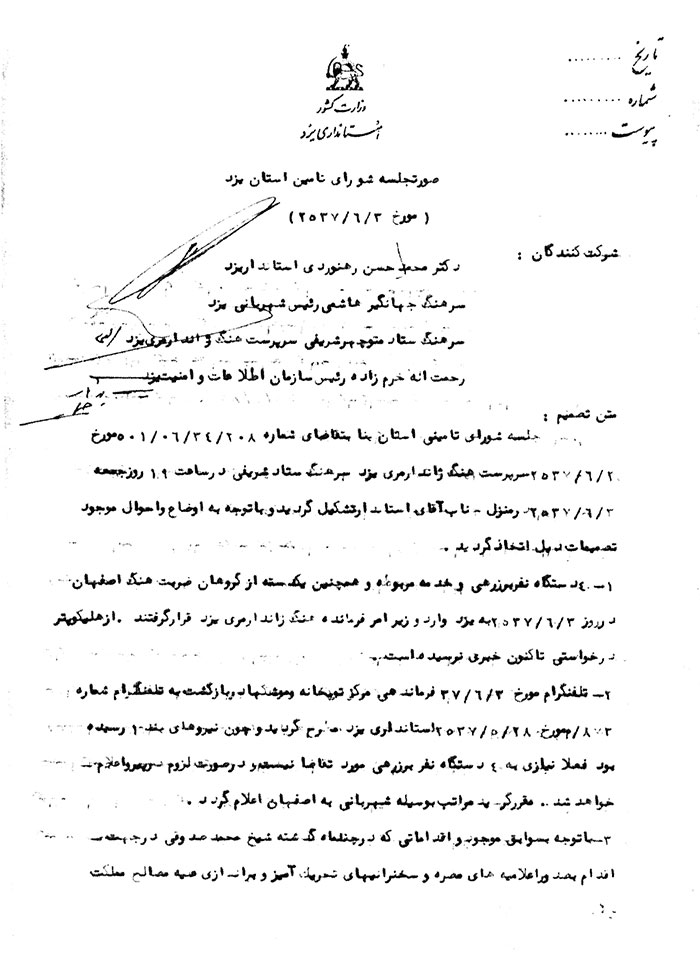 تاریخ ..........
شماره ..........
پیوست ........
وزارت کشور
استانداری یزد
صورتجلسه شورای تامین استان یزد
( مورخ ۲۵۳۷/۶/۳ )
شرکت کنندگان :
دکتر محمد حسن رهنوردی استاندار یزد
سرهنگ جهانگیر هاشمی رئیس شهربانی یزد
سرهنگ ستاد منوچهر شریفی سرپرست هنگ ژاندارمری یزد
رحمت اله خرم زاده رئیس سازمان اطلاعات و امنیت یزد
متن تصمیم :
جلسه شورای تامینی استان بنا بتقاضای شماره ۵۰۱/۰۶/۳۴/۲۰۸ مورخ
۲۵۳۷/۶/۲ سرپرست هنگ ژاندارمری یزد سرهنگ ستاد شریفی در ساعت ۱۹ روز جمعه
۲۵۳۷/۶/۳ در منزل جناب آقای استاندار تشکیل گردید و با توجه به اوضاع و احوال موجود
تصمیمات ذیل اتخاذ گردید .
۱- ۴ دستگاه نفربر زرهی و خدمه مربوطه و همچنین یکدسته از گروهان ضربت هنگ اصفهان
در روز ۲۵۳۷/۶/۳ به یزد وارد و زیر امر فرمانده هنگ ژاندارمری یزد قرار گرفتند . از هلیکوپتر
درخواستی تاکنون خبری نرسیده است .
۲- تلفنگرام مورخ ۳۷/۶/۳ فرماندهی مرکز توپخانه و موشکها در بازگشت به تلفنگرام شماره
۸۷۳/م مورخ ۲۵۳۷/۵/۲۸ استانداری یزد مطرح گردید و چون نیروهای بند ۱ رسیده
بود فعلا نیازی به ۴ دستگاه نفربر زرهی مورد تقاضا نیست و در صورت لزوم اعلام
خواهد شد . مقرر گردید مراتب بوسیله شهربانی به اصفهان اعلام گردد .
۳- با توجه بسوابق موجود و اقداماتی که در چند ماه گذشته شیخ محمد صدوقی در جهت
اقدام بصدور اعلامیه های مضره و سخنرانیهای تحریک آمیز و براندازی علیه مصالح مملکت